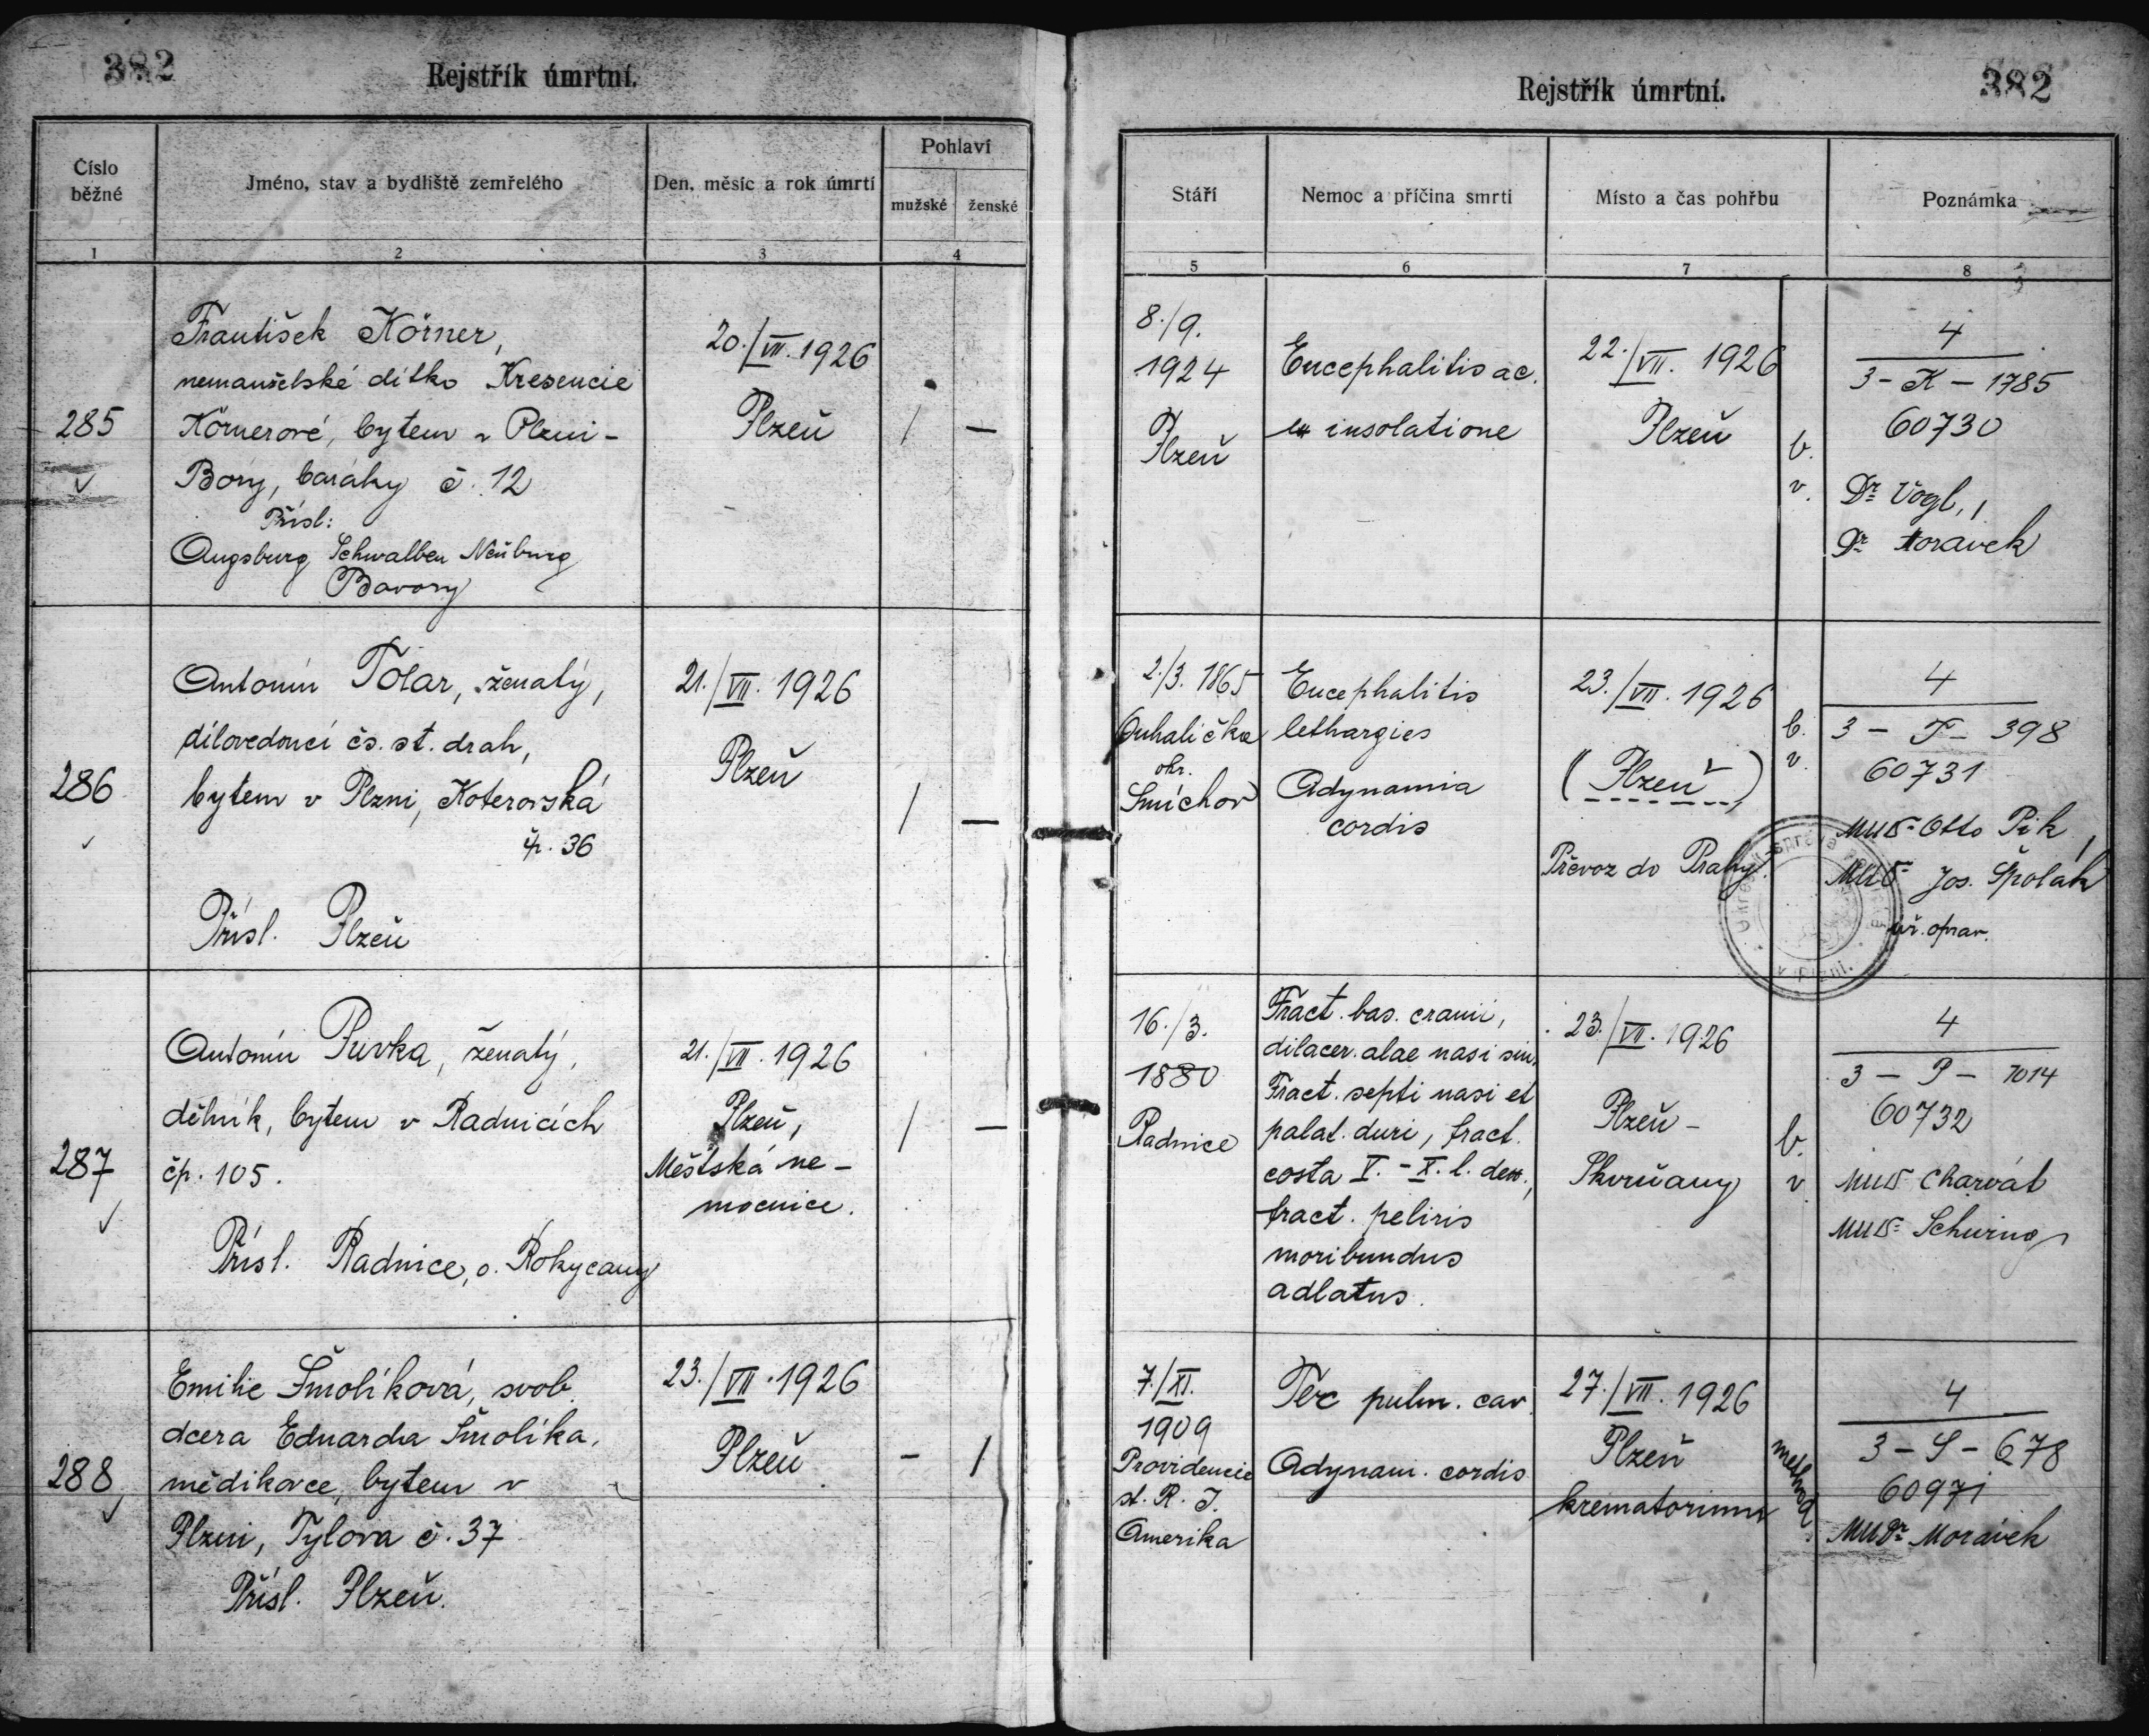 382
Rejstřík úmrtní.
Číslo běžné
Jméno, stav a bydliště zemřelého
Den, měsíc a rok úmrtí
Pohlaví
mužské
ženské
1
2
3
4
285
František Körner,
nemanželské dítko Kresencie
Körnerové, bytem v Plzni-
Bory, baráky č. 12
Přísl:
Augsburg Schwalben Neüburg
Bavory
20./VII. 1926
Plzeň
/
—
286
Antonín Tolar, ženatý,
dílovedoucí čs. st. drah,
bytem v Plzni, Koterovská
čp. 36
Přísl. Plzeň
21./VII. 1926
Plzeň
/
—
287
Antonín Puvka, ženatý,
dělník, bytem v Radnicích
čp. 105.
Přísl. Radnice, o. Rokycany
21./VII. 1926
Plzeň,
Městská ne-
mocnice.
/
—
288
Emilie Šmolíková, svob.
dcera Eduarda Šmolíka,
mědikovce, bytem v
Plzni, Tylova č. 37
Přísl. Plzeň.
23./VII. 1926
Plzeň
-
/
Rejstřík úmrtní.
382
Stáří
Nemoc a příčina smrti
Místo a čas pohřbu
Poznámka
5
6
7
8
8./9.
1924
Plzeň
Encephalitis ac.
ex insolatione
22./VII. 1926
Plzeň
b.
v.
4
3 - K - 1785
60730
Dr. Vogl,
Dr. Moravek
2./3. 1865
Ouhalička
okr.
Smíchov
Encephalitis
lethargies
Adynamia
cordis
23./VII. 1926
(Plzeň)
Převoz do Prahy.
b.
v.
4
3 - T - 398
60731
MUDr. Otto Pik,
MUDr. Jos. Špolák
úř. oprav.
v Plzni.
16./3.
1880
Radnice
Fract. bas. cranii,
dilacer. alae nasi sin.
Fract. septi nasi et
palat. duri, fract.
costa V. - X. l. dex.,
fract. pelviis
moribundus
adlatus.
23./VII. 1926
Plzeň-
Skvrňany
b.
v
4
3 - P - 1014
60732
MUDr Charvát
MUDr. Schwing
7./XI.
1909
Providencie
st. R. I.
Amerika
Tbc pulm. cav.
Adynam. cordis
27./VII. 1926
Plzeň
krematorium
4
3 - S - 678
60971
MUDr. Morávek